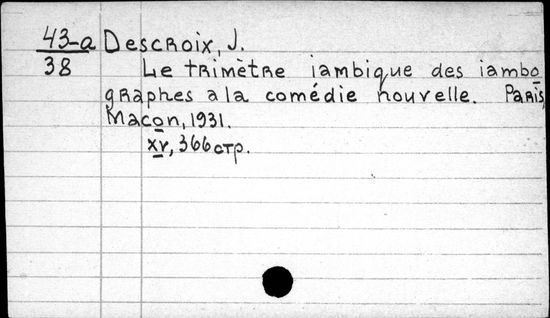 43-a Descroix, J.
38 Le trimètre iambique des iambo
graphes a la comédie nouvelle. Paris,
Macon, 1931.
xv, 366 стр.